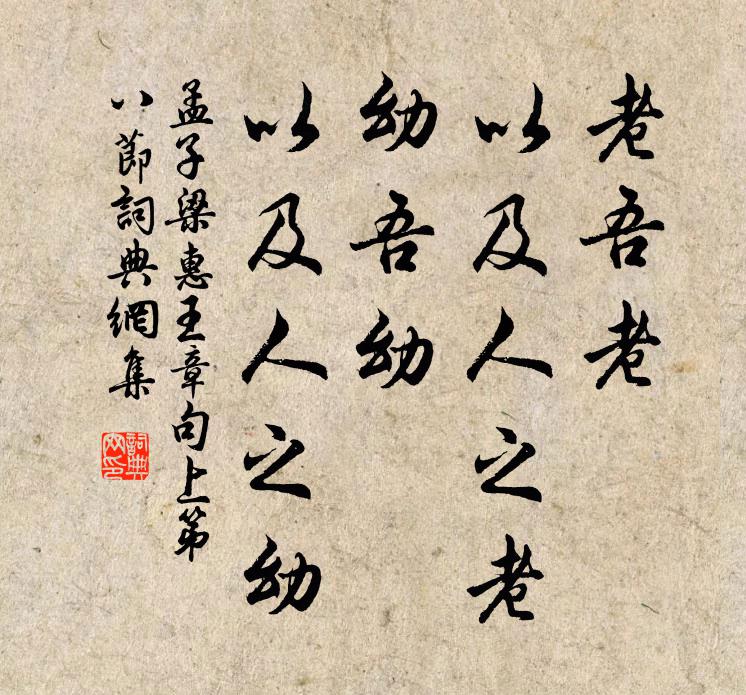 老吾老
以及人之老
幼吾幼
以及人之幼
孟子梁惠王章句上第
八節詞典網集
詞典
网印